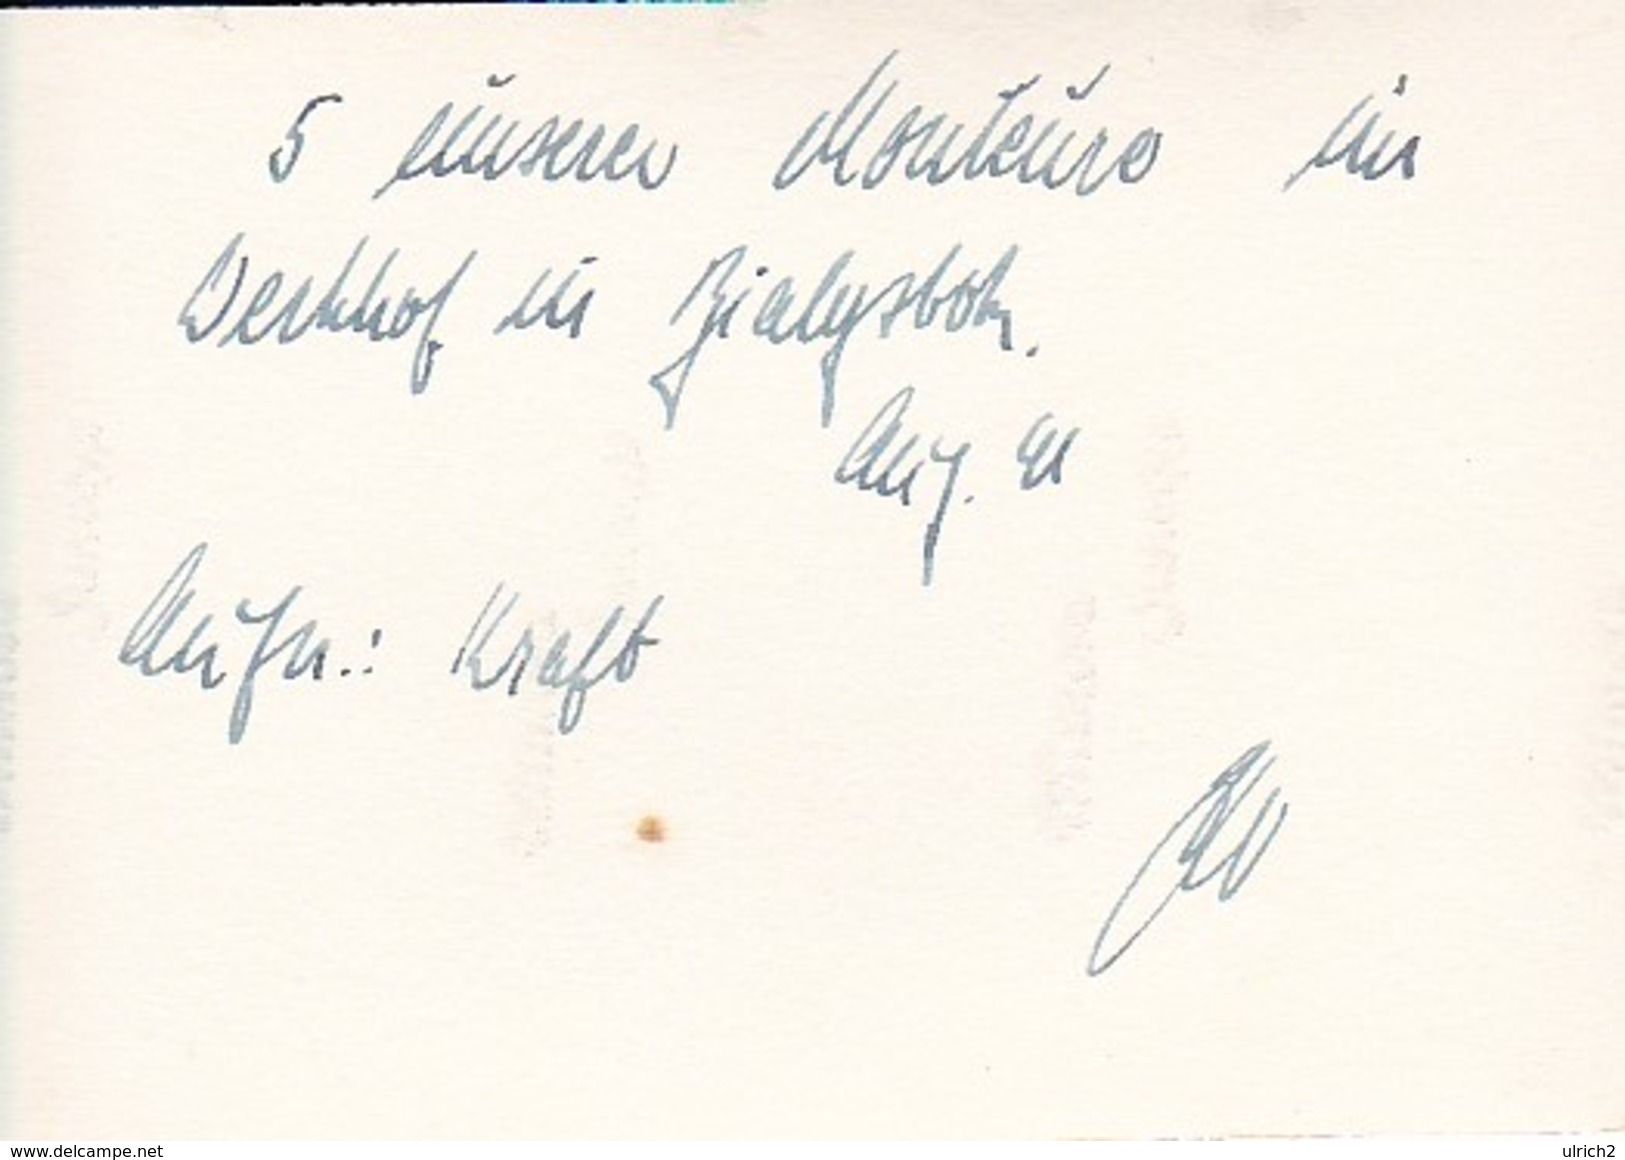 5 unserer Monteure im
Werkhof in Bialystok.
Aug. 41
Aufn.: Kraft
delcampe.net
ulrich2